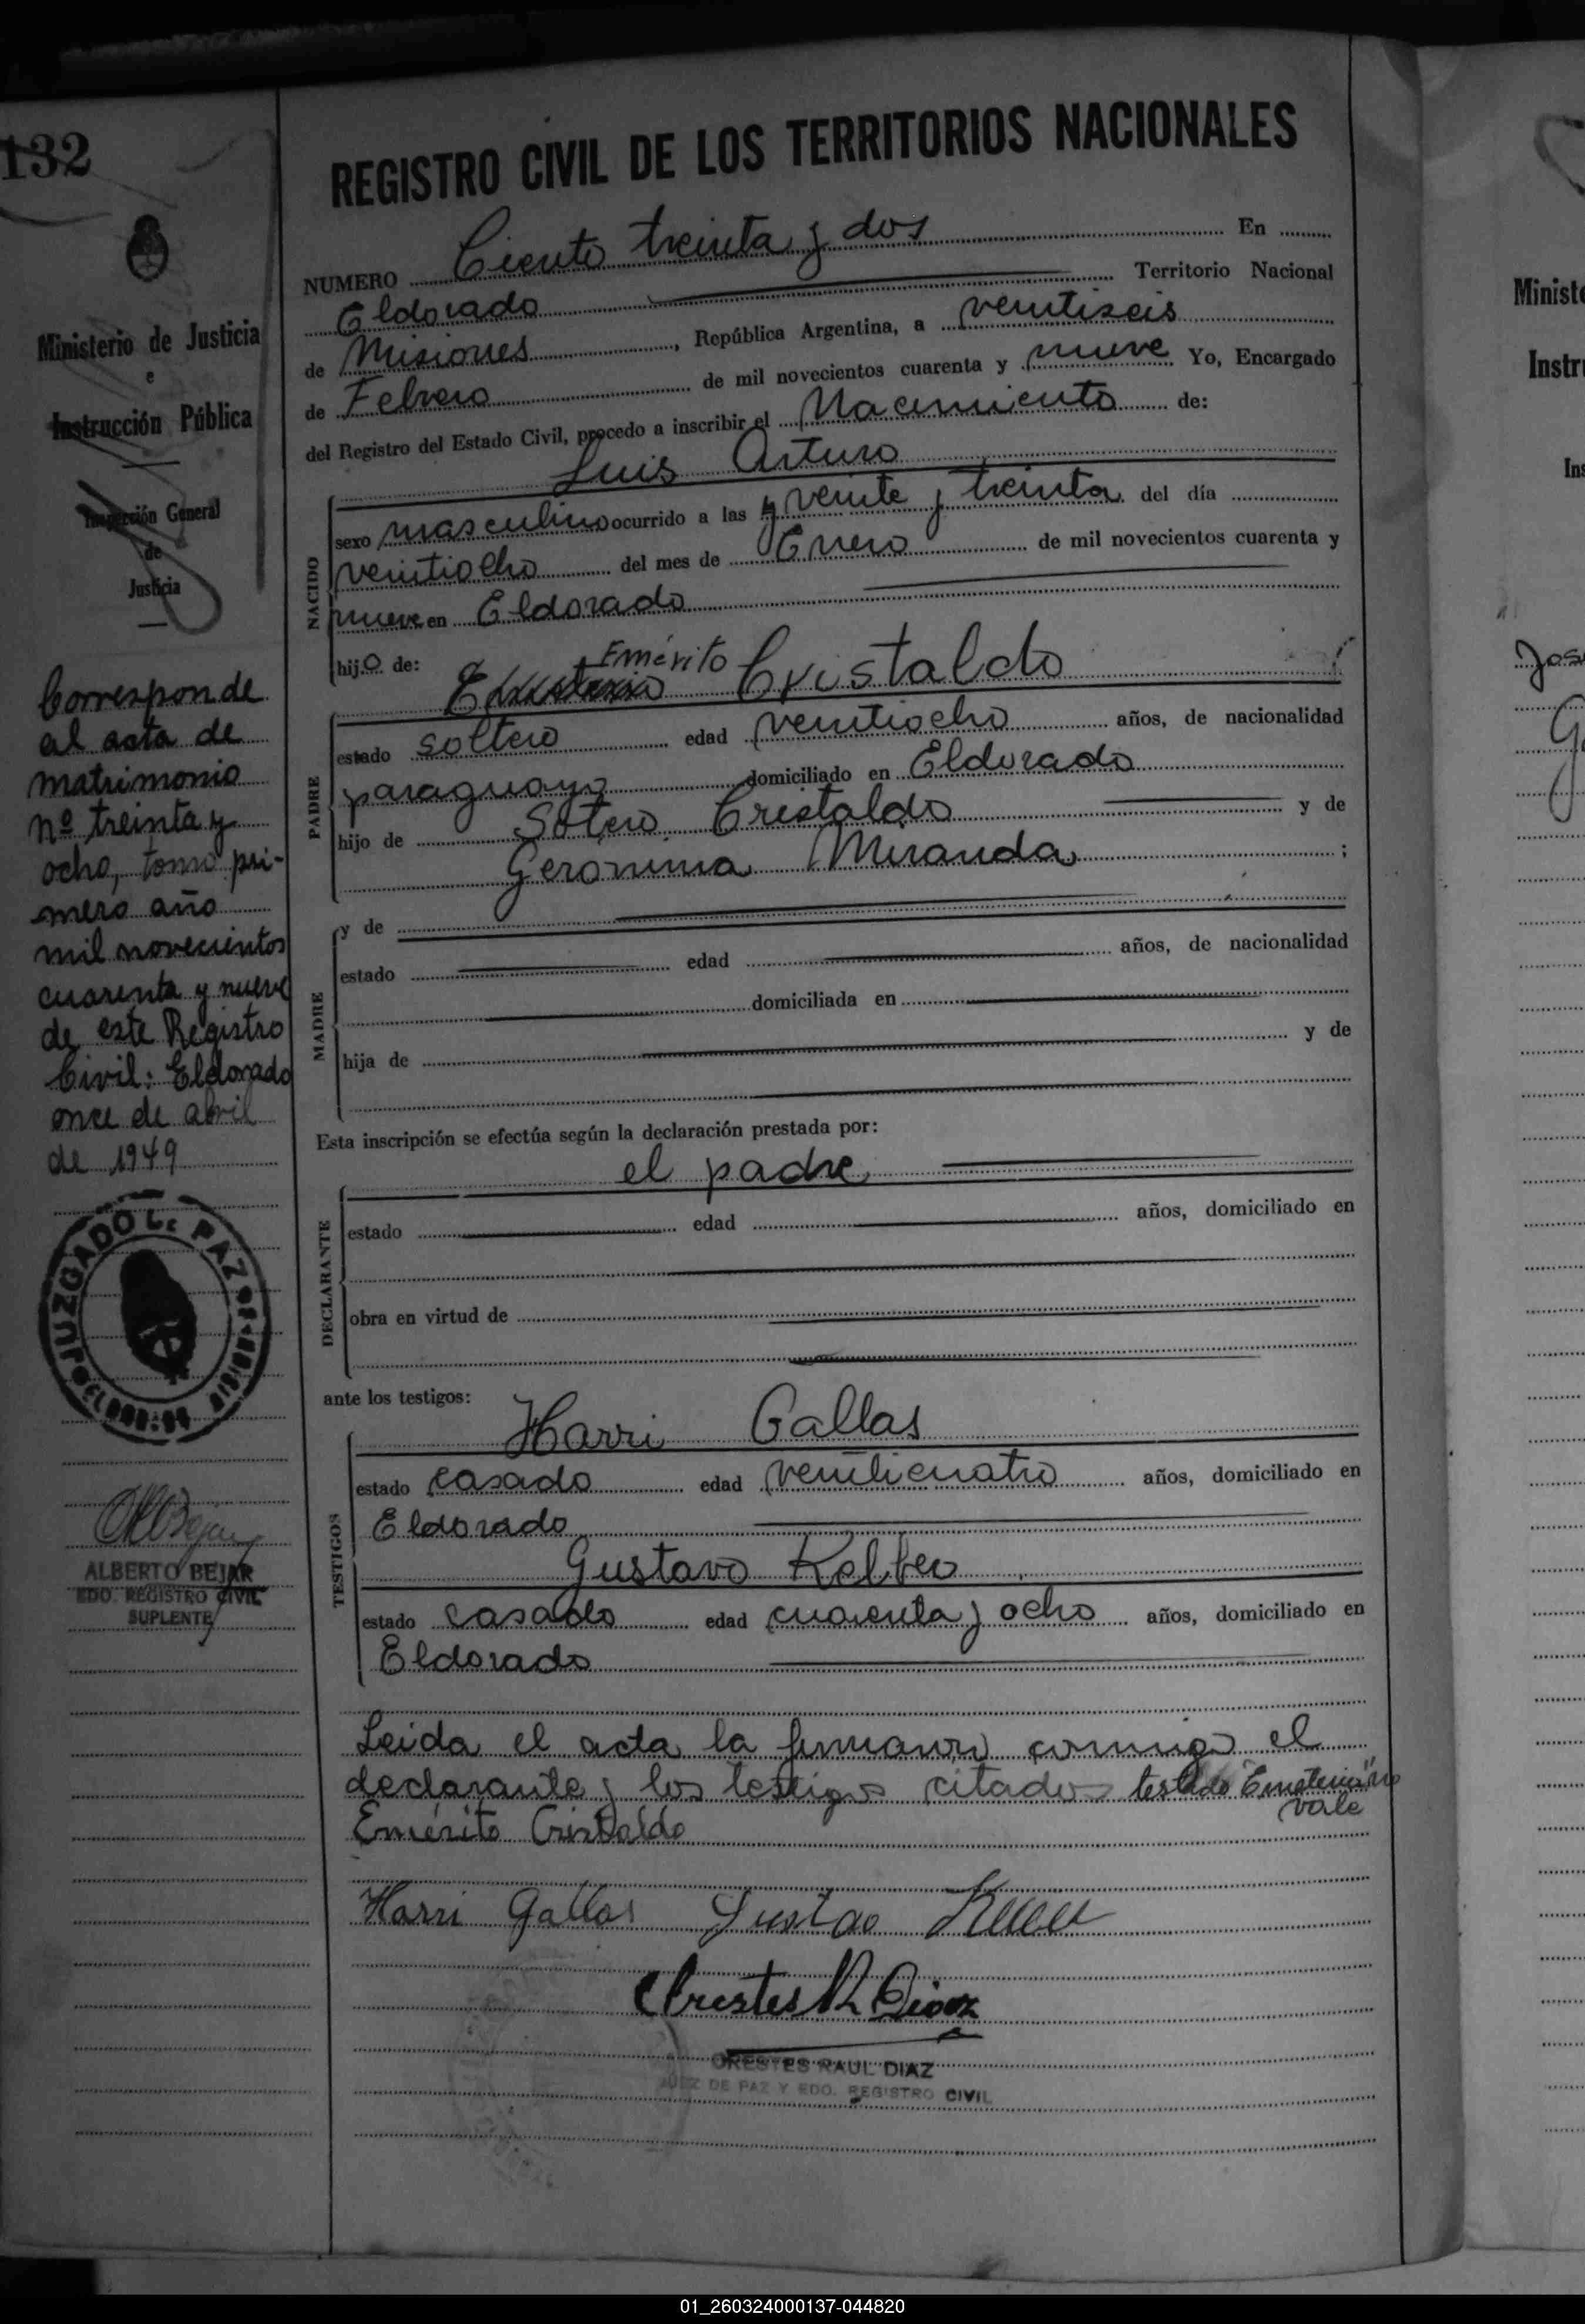 132
Ministerio de Justicia
e
Instrucción Pública
Inspección General
de
Justicia
Corresponde
al acta de
matrimonio
nº treinta y
ocho, tomo pri-
mero año
mil novecientos
cuarenta y nueve
de este Registro
Civil: Eldorado
once de abril
de 1949
JUZGADO DE PAZ
ALBERTO BEJAR
EDO. REGISTRO CIVIL
SUPLENTE
REGISTRO CIVIL DE LOS TERRITORIOS NACIONALES
NUMERO Ciento treinta y dos En
Eldorado Territorio Nacional
de Misiones, República Argentina, a veintiseis
de Febrero de mil novecientos cuarenta y nueve Yo, Encargado
del Registro del Estado Civil, procedo a inscribir el Nacimiento de:
Luis Arturo
NACIDO
sexo masculino ocurrido a las veinte y treinta del día
veintiocho del mes de Enero de mil novecientos cuarenta y
nueve en Eldorado
hijo de:
Emérito Cristaldo
PADRE
estado soltero edad veintiocho años, de nacionalidad
paraguayo domiciliado en Eldorado
hijo de Sotero Cristaldo y de
Geronima Miranda ;
MADRE
y de
estado edad años, de nacionalidad
domiciliada en
hija de y de
Esta inscripción se efectúa según la declaración prestada por:
el padre
DECLARANTE
estado edad años, domiciliado en
obra en virtud de
ante los testigos:
Harri Gallas
TESTIGOS
estado casado edad veinticuatro años, domiciliado en
Eldorado
Gustavo
estado casado edad cuarenta y ocho años, domiciliado en
Eldorado
Leida el acta la firmaron conmigo el
declarante y los testigos citados testado "Emeterio" no
vale
Emérito Cristaldo
Harri Gallas
Orestes R Diaz
ORESTES RAUL DIAZ
JUEZ DE PAZ Y EDO. REGISTRO CIVIL
Minist
Instr
In
Jos
01_260324000137-044820